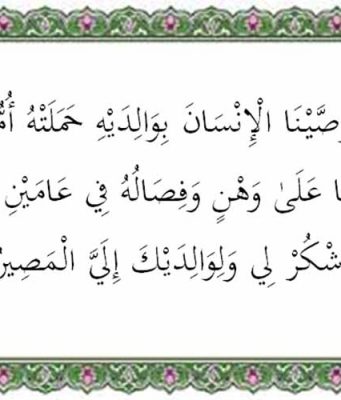 صَّيْنَا الْإِنْسَانَ بِوَالِدَيْهِ حَمَلَتْهُ أُمُّ
ا عَلَىٰ وَهْنٍ وَفِصَالُهُ فِي عَامَيْنِ
شْكُرْ لِي وَلِوَالِدَيْكَ إِلَيَّ الْمَصِيرُ